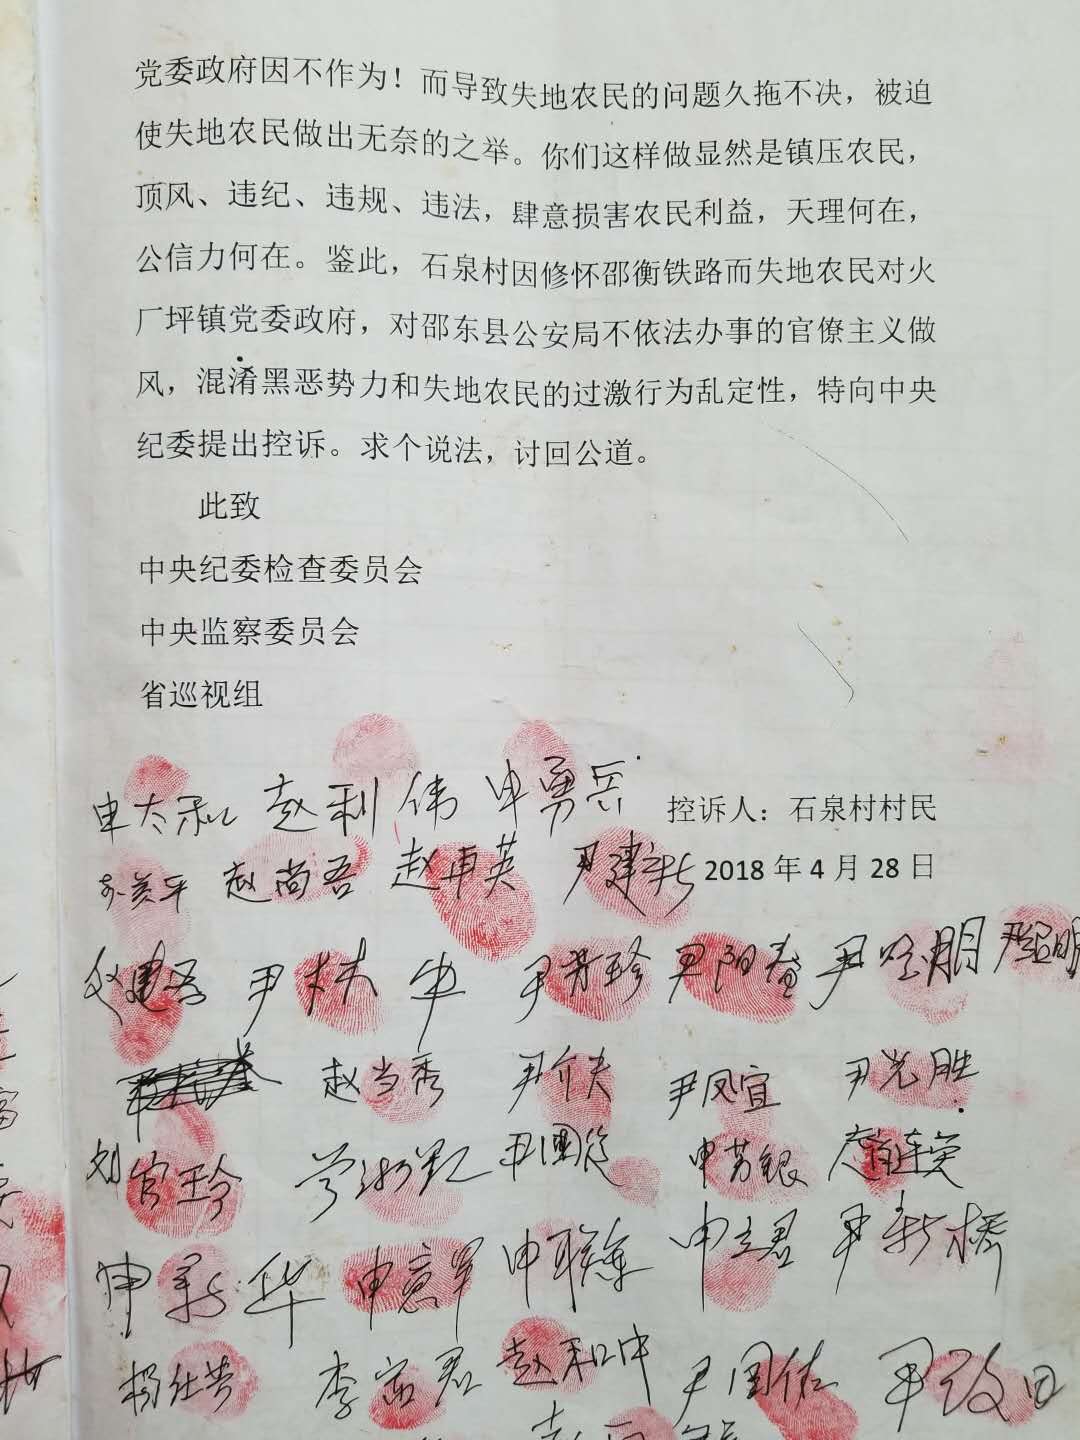 党委政府因不作为！而导致失地农民的问题久拖不决，被迫
使失地农民做出无奈的之举。你们这样做显然是镇压农民，
顶风、违纪、违规、违法，肆意损害农民利益，天理何在，
公信力何在。鉴此，石泉村因修怀邵衡铁路而失地农民对火
厂坪镇党委政府，对邵东县公安局不依法办事的官僚主义做
风，混淆黑恶势力和失地农民的过激行为乱定性，特向中央
纪委提出控诉。求个说法，讨回公道。
此致
中央纪委检查委员会
中央监察委员会
省巡视组
申太和 赵利伟 申勇兵 控诉人：石泉村村民
赵尚吾 赵再英 尹建新 2018年4月28日
赵建吾 尹 尹芳珍 尹阳春
赵当秀 尹介夫 尹凤宜 尹光胜
刘宫玉 尹国 申芳银 连
申 华 申意军 申联 申立君 尹新桥
杨仕 李 君 赵和中 尹国佑 尹